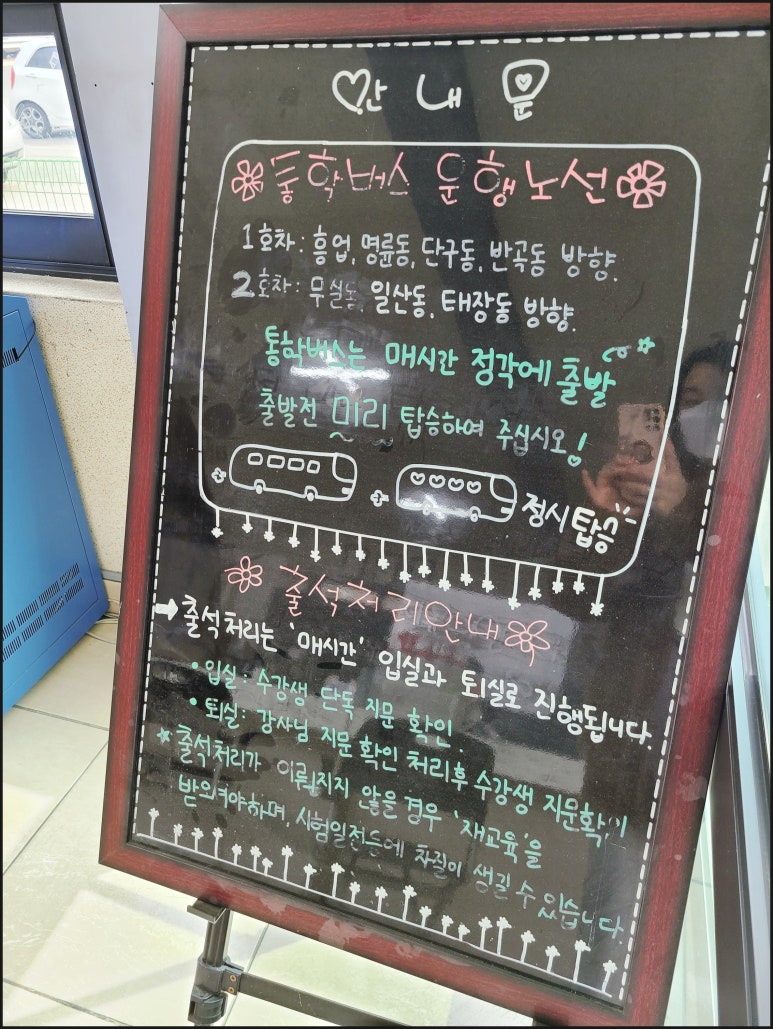 안내문
통학버스 운행노선
1호차: 흥업, 명륜동, 단구동, 반곡동 방향.
2호차: 무실동, 일산동, 태장동 방향.
통학버스는 매시간 정각에 출발
출발전 미리 탑승하여 주십시오!
정시탑승
출석처리안내
→ 출석처리는 '매시간' 입실과 퇴실로 진행됩니다.
• 입실: 수강생 단독 지문 확인.
• 퇴실: 강사님 지문 확인 처리후 수강생 지문확인
출석처리가 이뤄지지 않을 경우 '재교육'을
받으셔야하며, 시험일전등에 차질이 생길 수 있습니다.